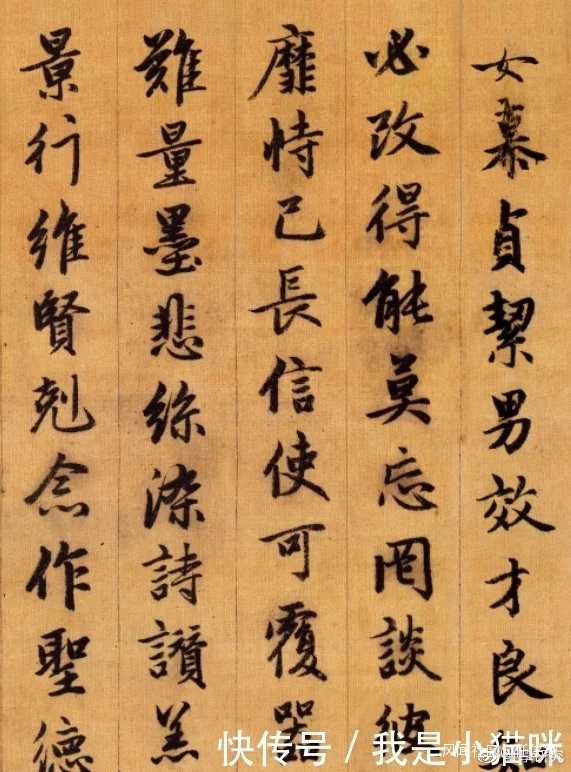 女慕貞絜男效才良
必改得能莫忘罔談彼
靡恃己長信使可覆器
難量墨悲絲染詩讚羔
景行維賢剋念作聖德
快传号 / 我是小猫咪